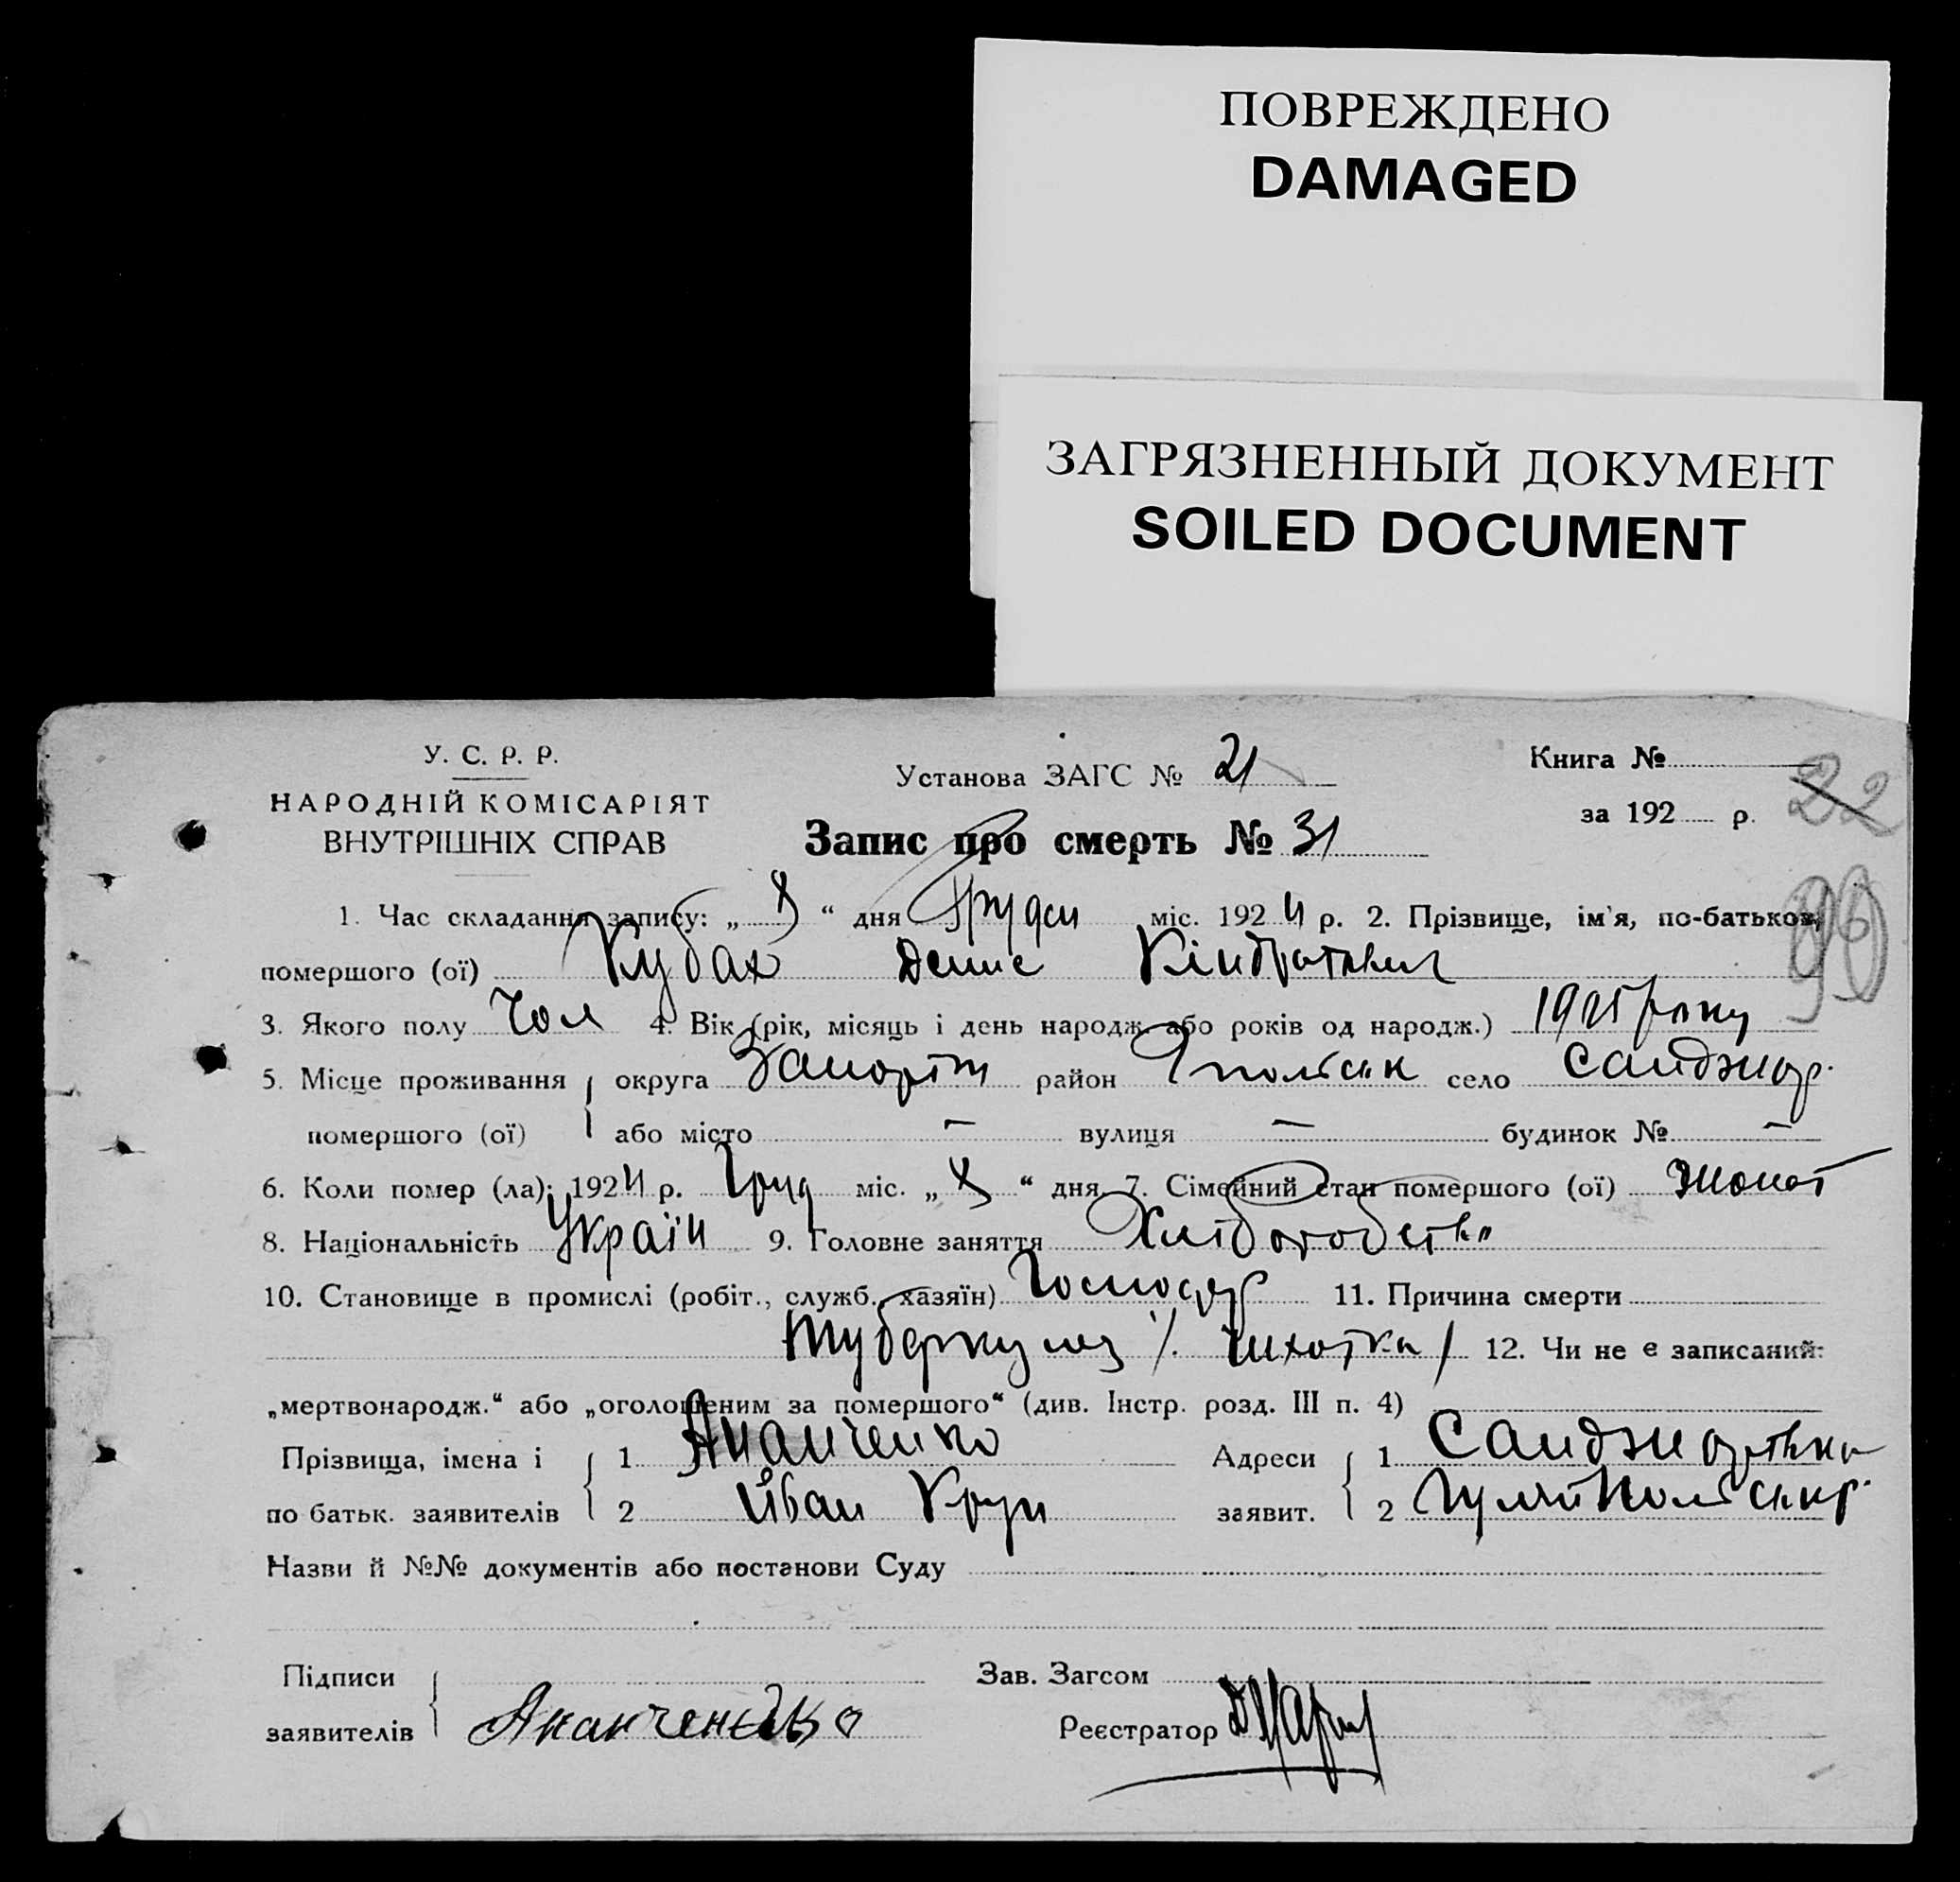 ПОВРЕЖДЕНО
DAMAGED
ЗАГРЯЗНЕННЫЙ ДОКУМЕНТ
SOILED DOCUMENT
У. С. Р. Р.
НАРОДНІЙ КОМІСАРІЯТ
ВНУТРІШНІХ СПРАВ
Установа ЗАГС № 21
Книга №
за 192 р.
22
Запис про смерть № 31
1. Час складання запису: „ 8 “ дня Грудня міс. 192 р. 2. Прізвище, ім'я, по-батькові,
помершого (ої) Кубах Денис Кіндратович
3. Якого полу Чол 4. Вік (рік, місяць і день народж. або років од народж.) року
5. Місце проживання округа Запоріж район село Санджар.
помершого (ої) або місто — вулиця — будинок № —
6. Коли помер (ла): 192 р. Груд міс. „ 8 “ дня. 7. Сімейний стан помершого (ої) Жонат
8. Національність Україн 9. Головне заняття Хліборобство
10. Становище в промислі (робіт., служб., хазяїн) Господар 11. Причина смерти
Туберкулез /. Чихотка / 12. Чи не є записаний:
„мертвонародж.“ або „оголошеним за помершого“ (див. Інстр. розд. III п. 4)
Прізвища, імена і 1 Ананченко Адреси 1
по батьк. заявителів 2 Йван заявит. 2
Назви й №№ документів або постанови Суду
Підписи Зав. Загсом
заявителів Ананченко Реєстратор